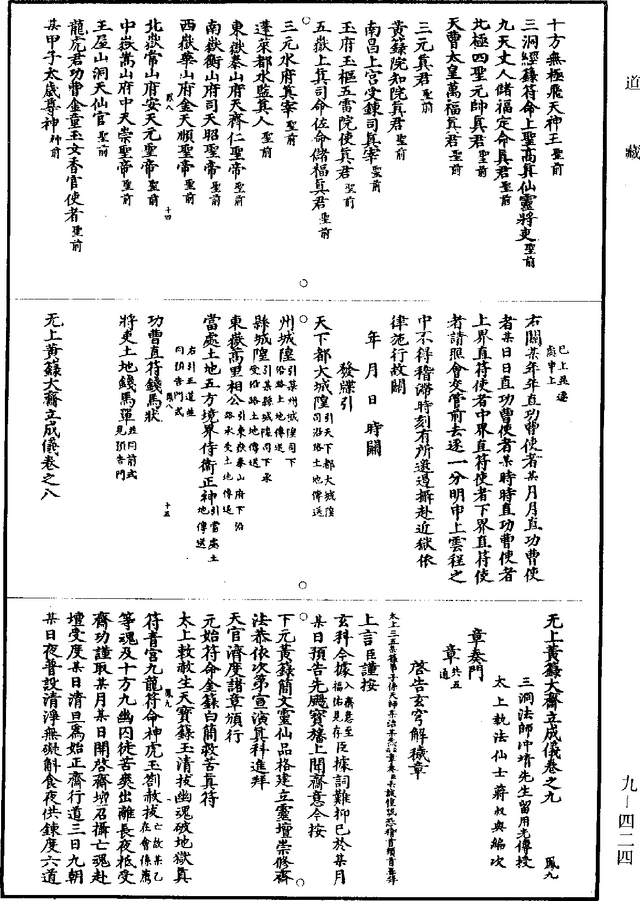 道藏
十方無極飛天神王聖前
三洞經籙符命上聖高真仙靈將吏聖前
九天丈人儲福定命真君聖前
北極四聖元帥真君聖前
天曹太皇萬福真君聖前
三元真君聖前
黃籙院知院真君聖前
南昌上宮受鍊司真宰聖前
玉府玉樞五雷院使真君聖前
五嶽上真司命佐命儲福真君聖前
三元水府真宰聖前
蓬萊都水監真人聖前
東嶽泰山府天齊仁聖帝聖前
南嶽衡山府司天昭聖帝聖前
西嶽華山府金天順聖帝聖前
鳳八 十四
北嶽常山府安天元聖帝聖前
中嶽嵩山府中天崇聖帝聖前
王屋山洞天仙官聖前
龍虎君功曹金童玉女香官使者聖前
某甲子太歲尊神神前
巳上並連
奏申上
右關某年年直功曹使者某月月直功曹使
者某日日直功曹使者某時時直功曹使者
上界直符使者中界直符使者下界直符使
者請照會交管前去逐一分明申上雲程之
中不得稽滯時刻有所違過攝赴近獄依
律施行故關
年 月 日 時 關
發牒引
天下都大城隍引天下都大城隍司沿路土地傳送
州城隍引某州城隍司下沿路土地傳送
縣城隍引某縣城隍司下承受沿路土地傳送
東嶽蒿里相公引東嶽泰山府下沿路承受土地傳送
當處土地五方境界侍衛正神引當處土地傳送
右引王道並同預告門式
鳳八 十五
功曹直符錢馬狀
將吏土地錢馬單並同前式見預告門
无上黃籙大齋立成儀卷之八
无上黃籙大齋立成儀卷之九 鳳九
三洞法師沖靖先生留用光傳授
太上執法仙士蔣叔輿編次
章奏門
章共五通
啓告玄穹解穢章
上言臣謹按
玄科今據入齋意至福佑見存臣據詞難抑已於某月
某日預告先颺寶旛上聞齋意今按
下元黃籙簡文靈仙品格建立靈壇崇修齋
法恭依次第宣演真科進拜
天官濟度諸章頒行
元始符命金籙白簡救苦真符
太上敕赦生天寶籙玉清拔幽魂破地獄真
鳳九
符青宮九龍符命神虎玉劄赦拔亡故某乙在會係薦
等魂及十方九幽囚徒苦爽出離長夜祗受
齋功謹取某月某日開啓齋壇召攝亡魂赴
壇受度某日清旦爲始正齋行道三日九朝
某日夜普設清淨無礙斛食夜供鍊度六道
九—四二四